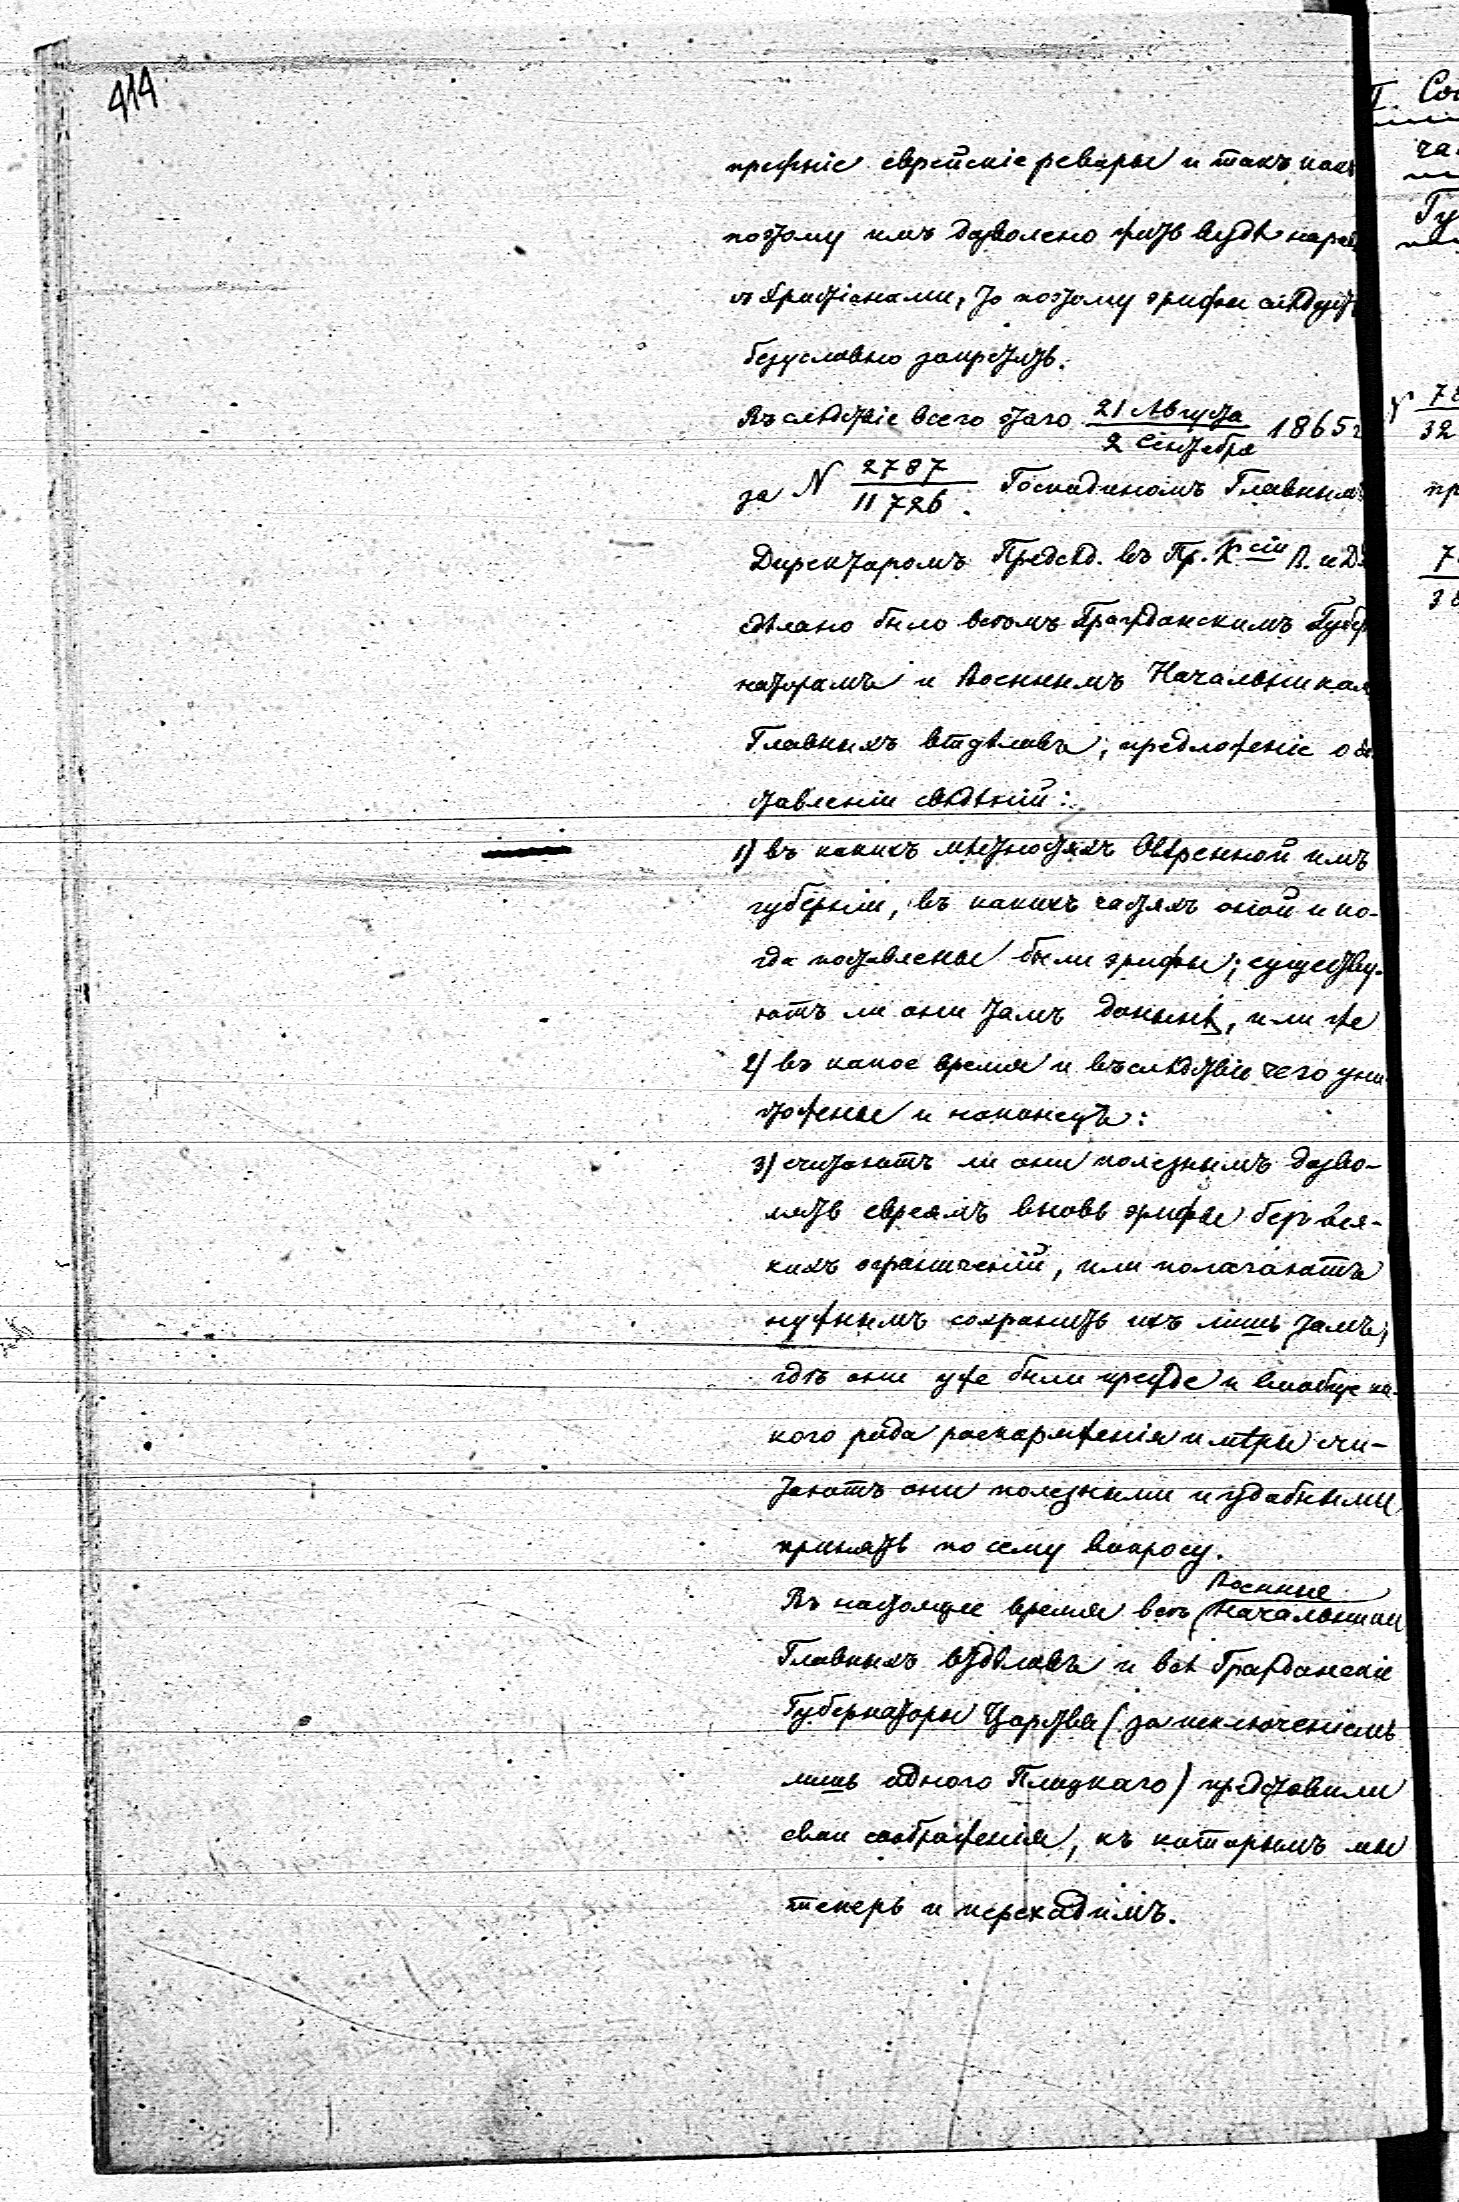 414
прежніе еврейскіе ревиры и такъ какъ
поэтому имъ дозволено жить вездѣ нарав
съ Христіанами, то поэтому эрифы слѣдуетъ
безусловно запретить.
Въ слѣдствіе всего этаго 21 Августа / 2 Сентября 1865 г
за N 2787 / 11726. Господиномъ Главнымъ
Директоромъ Предсѣд. въ Пр. Ксіи В. и Д.
сдѣлано было всѣмъ Гражданскимъ Губер
наторамъ и Военнымъ Начальникам
Главныхъ втдѣловъ, предложеніе о до
ставленіи свѣдѣній:
1) въ какихъ мѣстностяхъ Ввѣренной имъ
губерніи, въ какихъ частяхъ оной и ко-
гда поставлены были эрифы; существу-
ютъ ли они тамъ донынѣ, или же
2) въ какое время и въслѣдствіе чего уни
чтожены и наконецъ:
3) считаютъ ли они полезнымъ дозво-
лять евреямъ вновь эрифы безъ вся-
кихъ ограниченій, или полагаютъ
нужнымъ сохранить ихъ лишь тамъ,
гдѣ они уже были прежде и вообще ка-
кого рода распоряженія и мѣры счи-
таютъ они полезными и удобными
принять по сему вопросу.
Въ настоящее время всѣ Военные Начальники
Главныхъ втдѣловъ и всѣ Гражданскіе
Губернаторы Царства (за исключеніемъ
лишь одного Плоцкаго) представили
свои соображенія, къ которымъ мы
теперь и переходимъ.